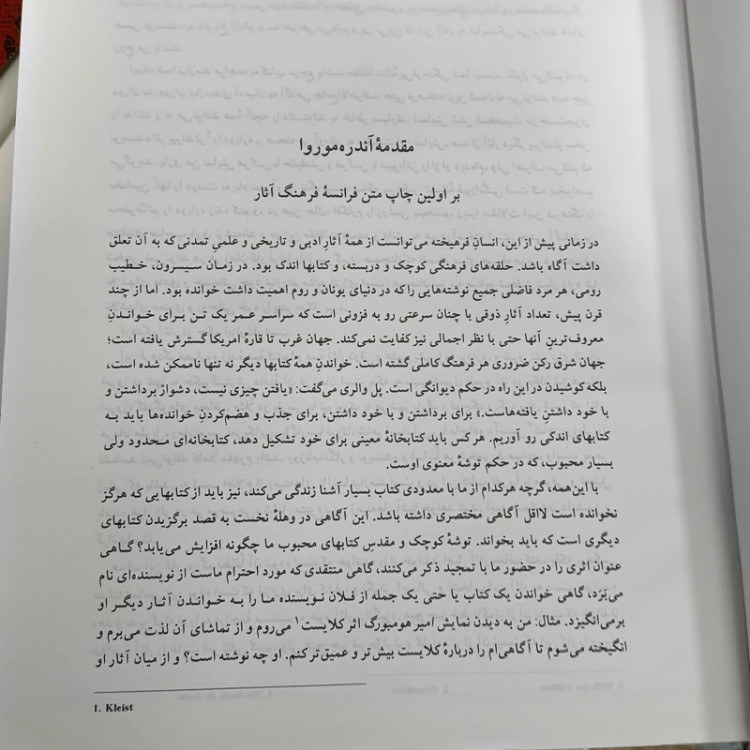 مقدمهٔ آندره موروا
بر اولین چاپ متن فرانسهٔ فرهنگ آثار
در زمانی پیش از این، انسانِ فرهیخته می‌توانست از همهٔ آثارِ ادبی و تاریخی و علمیِ تمدنی که به آن تعلق
داشت آگاه باشد. حلقه‌های فرهنگی کوچک و دربسته، و کتابها اندک بود. در زمان سیسرون، خطیب
رومی، هر مرد فاضلی جمیع نوشته‌هایی را که در دنیای یونان و روم اهمیت داشت خوانده بود. اما از چند
قرن پیش، تعداد آثارِ ذوقی با چنان سرعتی رو به فزونی است که سراسر عمر یک تن برای خواندنِ
معروف‌ترینِ آنها حتی با نظر اجمالی نیز کفایت نمی‌کند. جهان غرب تا قارهٔ امریکا گسترش یافته است؛
جهان شرق رکن ضروری هر فرهنگ کاملی گشته است. خواندنِ همهٔ کتابها دیگر نه تنها ناممکن شده است،
بلکه کوشیدن در این راه در حکم دیوانگی است. پل والری می‌گفت: «یافتن چیزی نیست، دشوار برداشتن و
با خود داشتنِ یافته‌هاست.» برای برداشتن و با خود داشتن، برای جذب و هضم‌کردنِ خوانده‌ها باید به
کتابهای اندکی رو آوریم. هر کس باید کتابخانهٔ معینی برای خود تشکیل دهد، کتابخانه‌ای محدود ولی
بسیار محبوب، که در حکم توشهٔ معنوی اوست.
با این‌همه، گرچه هرکدام از ما با معدودی کتاب بسیار آشنا زندگی می‌کند، نیز باید از کتابهایی که هرگز
نخوانده است لااقل آگاهی مختصری داشته باشد. این آگاهی در وهلهٔ نخست به قصد برگزیدن کتابهای
دیگری است که باید بخواند. توشهٔ کوچک و مقدسِ کتابهای محبوب ما چگونه افزایش می‌یابد؟ گاهی
عنوان اثری را در حضور ما با تمجید ذکر می‌کنند، گاهی منتقدی که مورد احترام ماست از نویسنده‌ای نام
می‌بَرَد، گاهی خواندن یک کتاب یا حتی یک جمله از فلان نویسنده ما را به خواندن آثار دیگر او
برمی‌انگیزد. مثال: من به دیدن نمایش امیر هومبورگ اثر کلایست۱ می‌روم و از تماشای آن لذت می‌برم و
انگیخته می‌شوم تا آگاهی‌ام را دربارهٔ کلایست بیش‌تر و عمیق‌تر کنم. او چه نوشته است؟ و از میان آثار او
1. Kleist